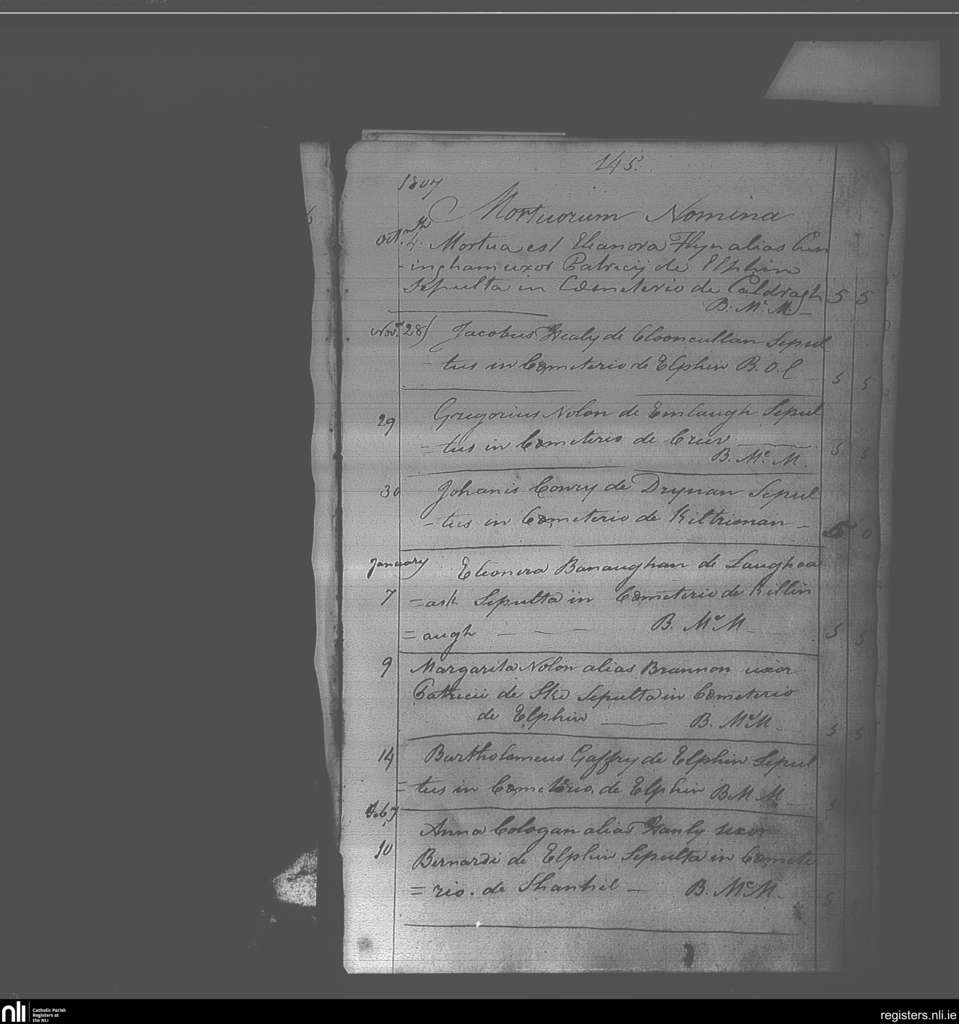 145.
1807
Mortuorum Nomina
Oct. 4. Mortua est Elianora Flyn alias Cun
-ingham uxor Patricij de Elphin
Sepulta in Cœmeterio de Caldragh 5 5
B. Mc. M
Novr. 28) Jacobus Healy de Clooncullan Sepul
- tus in Cœmeterio de Elphin B. O. C 5 5
29 Gregorius Nolon de Emlaugh Sepul
= tus in Cœmeterio de Creev 5 5
B. Mc. M.
30 Johanis Conry de Drynan Sepul
- tus in Cœmeterio de Kiltriman - 5 0
January Eleonora Banaughan de Laughaa
7 = ask Sepulta in Cœmeterio de Killin
= augh B. Mc M 5 5
9 Margarita Nolon alias Brannon uxor
Patricii de Ske Sepulta in Cœmeterio
de Elphin B. Mc M 5 5
14 Bartholomeus Gaffry de Elphin Sepul
= tus in Cœmeterio de Elphin B M M 5
Feby Anna Cologan alias Hanly uxor
10 Bernardi de Elphin Sepulta in Cœmete
= rio. de Shankil - B. Mc M. 5
nli Catholic Parish
Registers at
the NLI
registers.nli.ie